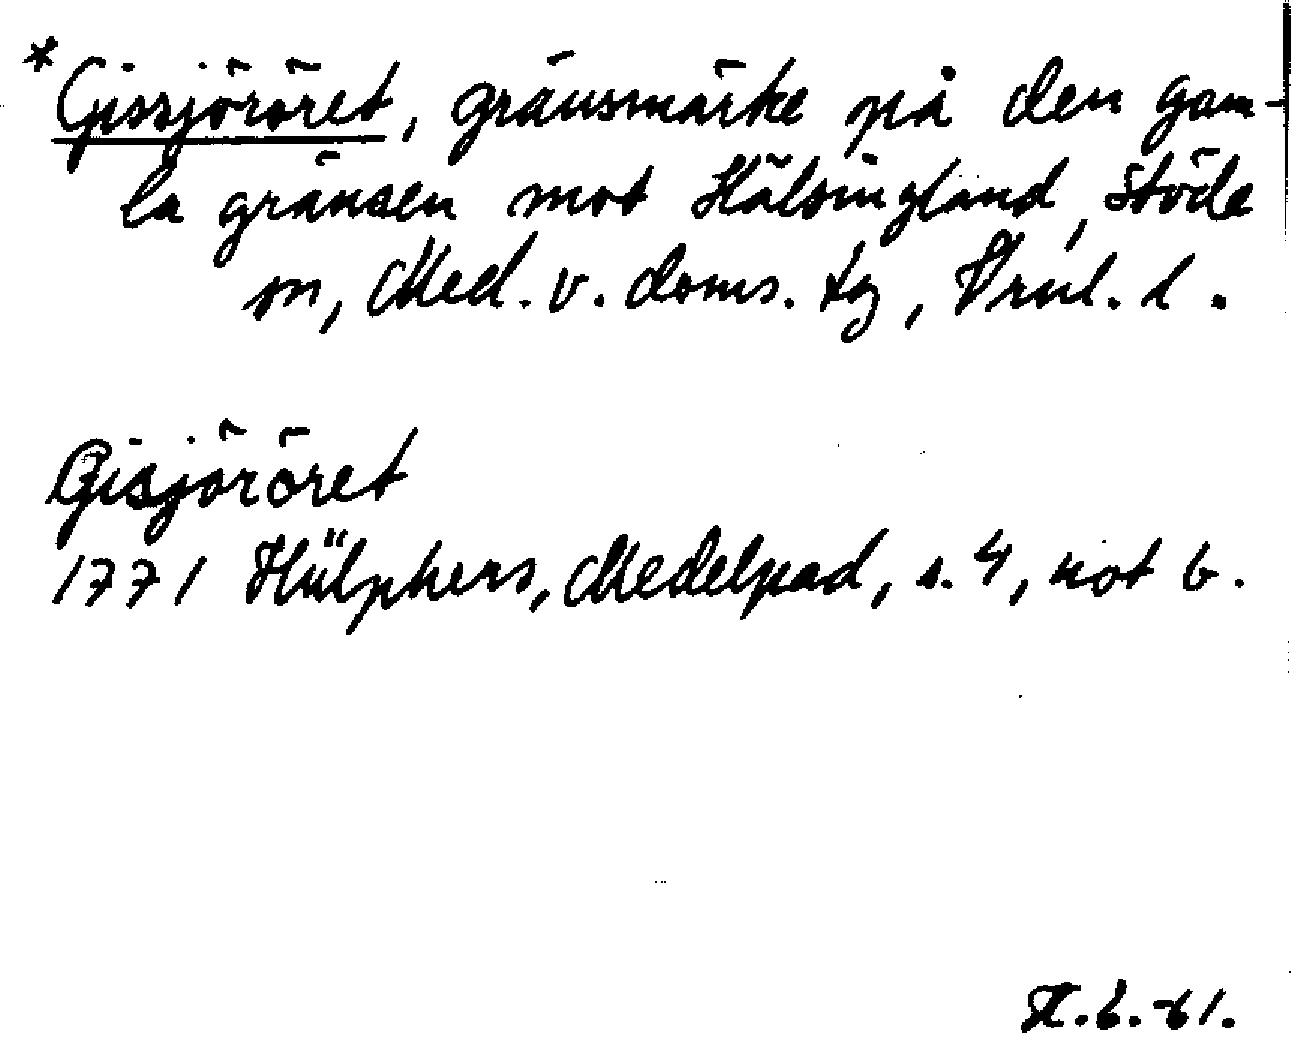 *Gissjöröret, gränsmärke på den gam-
la gränsen mot Hälsingland, Stöde
sn, Med. v. doms. tg, Vrnl. l.
Gisjöröret
1771 Hülphers, Medelpad, s. 4, not b.
-61.